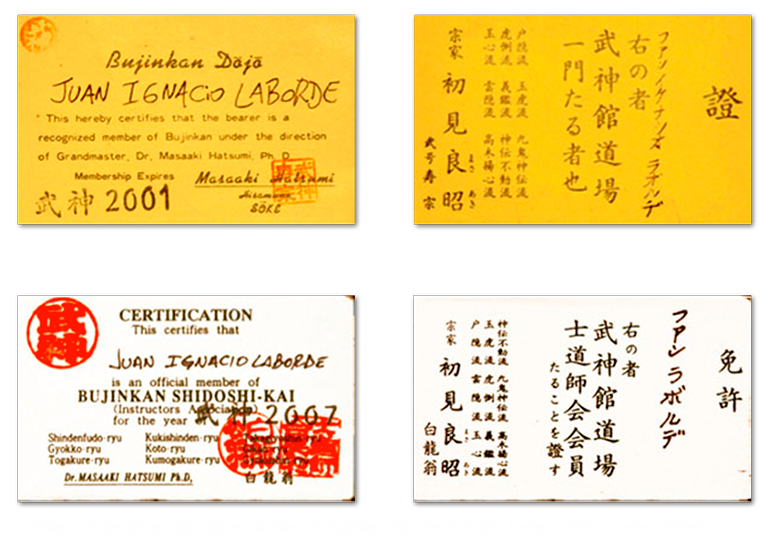 Bujinkan Dōjō
JUAN IGNACIO LABORDE
This hereby certifies that the bearer is a
recognized member of Bujinkan under the direction
of Grandmaster, Dr, Masaaki Hatsumi, Ph. D.
Membership Expires
Masaaki Hatsumi
Hisamune
SŌKE
武神 2001
證
ファン イグナシオ ラボルデ
右の者
武神館道場
一門たる者也
戸隠流 玉虎流 九鬼神伝流
虎倒流 義鑑流 神伝不動流
玉心流 雲隠流 高木揚心流
宗家 初見良昭
まさ あき
武号寿宗
武神
CERTIFICATION
This certifies that
JUAN IGNACIO LABORDE
is an official member of
BUJINKAN SHIDOSHI-KAI
(Instructors Association)
for the year of 武神 2007
Shindenfudo-ryu Kukishinden-ryu Takagiyoshin-ryu
Gyokko-ryu Koto-ryu Gikan-ryu
Togakure-ryu Kumogakure-ryu Gyokushin-ryu
Dr. MASAAKI HATSUMI Ph.D,
白龍翁
免許
ファン ラボルデ
右の者
武神館道場
士道師会会員
たることを證す
神伝不動流 九鬼神伝流 高木揚心流
玉虎流 虎倒流 義鑑流
戸隠流 雲隠流 玉心流
宗家 初見良昭
まさ あき
白龍翁